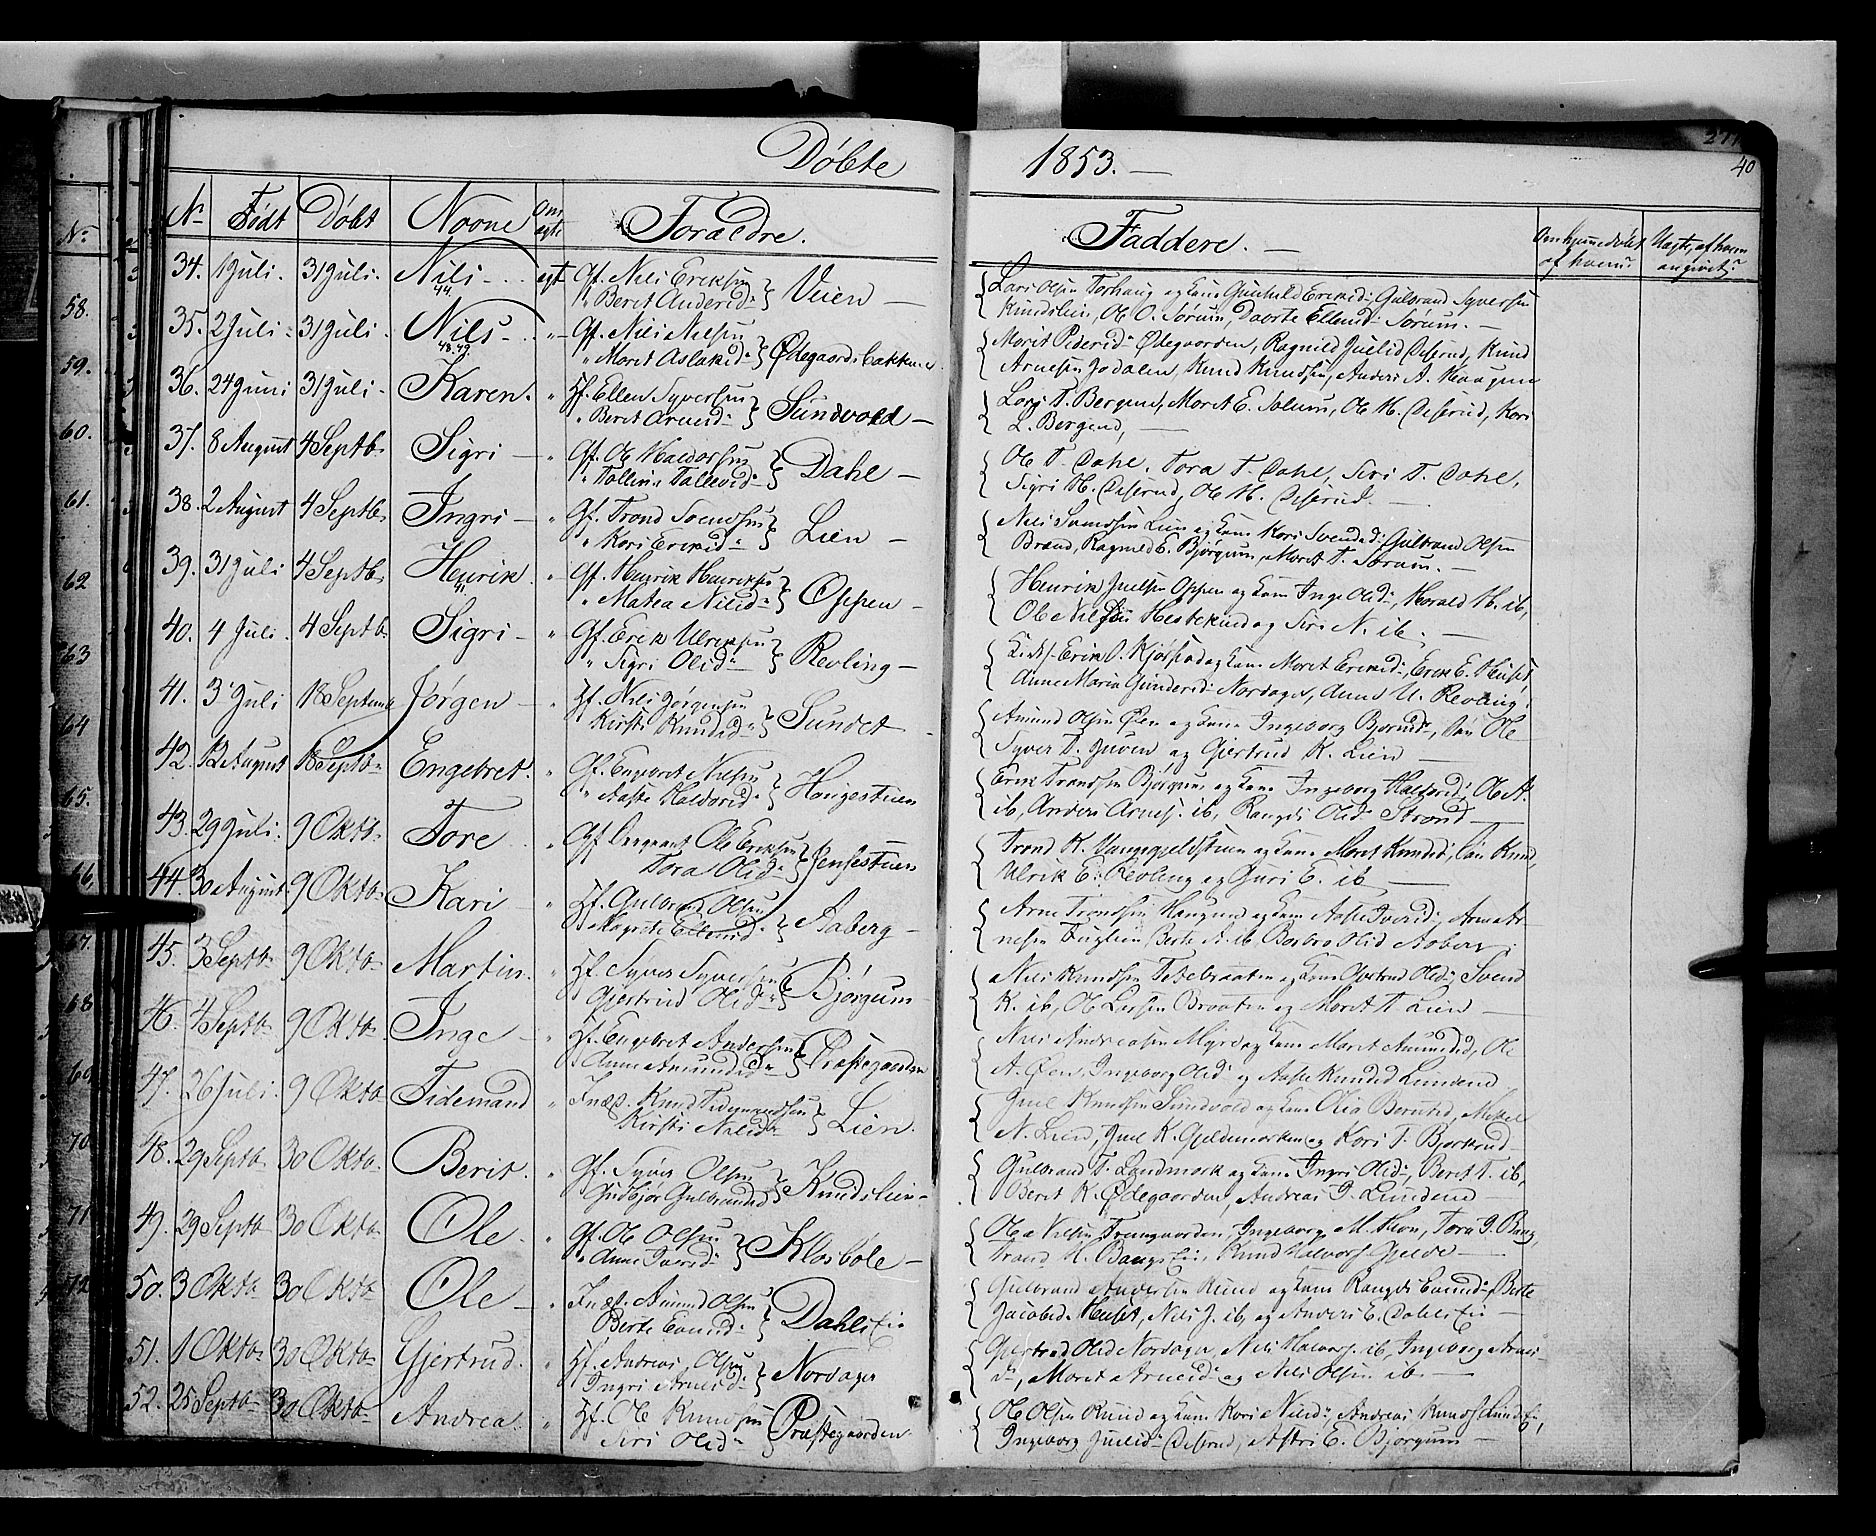 Døbte 1853. —
271
40
Nr Født Døbt Navne Om ægte Forældre. Faddere. — Om hjemmedøbt af hvem? Uægte, af hvem angivet?
34. 1 Juli. 31 Juli. Nils — ægt Gf. Nils Eriksen
44 " Beret Andersd. } Veien —
Lars Olsen Torhaug og Kone Gunhild Eriksd. Gulbrand Syversen
Knudslien, Ole O. Sørum, Dorte Ellensd. Sørum. —
35. 2 Juli. 31 Juli. Nils — " Gf. Nils Nilsen
48.49 " Marit Aslaksd. } Ødegaardsbakken
Marit Pedersd. Ødegaarden, Ragnild Juelsd. Deserud, Knud
Arnesen Jodalen, Knud Knudsen, Anders A. Haugen
36. 24 Juni 31 Juli. Karen. " Hf. Ellen Syversen
" Beret Arnesd. } Sundvold —
Lars T. Bergsund, Marit E. Solum, Ole H. Deserud, Kari
L. Bergsund, —
37. 8 August 4 Septb. Sigri — " Gf. Ole Haldorsen
" Tolline Tollevsd. } Dahl —
Ole T. Dahl, Tora T. Dahl, Siri T. Dahl,
Sigri H. Deserud, Ole H. Deserud. —
38. 2 August 4 Septb. Ingri — " Gf. Trond Svendsen
" Kari Eriksd. } Lien —
Nils Svendsen Lien og Kone Kari Svendsd. Gulbrand Olsen
Brænd, Ragnild E. Bjørgum, Marit T. Sørum. —
39. 31 Juli 4 Septb. Henrik. " Gf. Henrik Henriksen
41 " Matea Nilsd. } Oppen —
Henrik Juelsen Oppen og Kone Inge Olsd., Harald H. ib,
Ole Nilsen Hestekind og Siri N. ib. —
40. 4 Juli. 4 Septb. Sigri — " Gf. Erik Ulriksen
" Sigri Olsd. } Revling —
Erik O. og Kone Marit Eriksd., Erik E. Huset,
Anne Maria Gundersd. Nordager, Anne U. Revling.
41. 3 Juli 18 Septemb. Jørgen — " Hf. Nils Jørgensen
Kirsti Knudsd. } Sundet
Amund Olsen Øen og Kone Ingeborg Bjørnsd., Ole
Syver T. Juven og Gjertrud K. Lien —
42. 12 August 18 Septb. Engebret. " Gf. Engebret Nilsen
" Aaste Haldorsd. } Haugestuen
Erik Trondsen Bjørgum og Kone Ingeborg Haldorsd., Ole A.
ib, Anders Arnes. ib, Rangdi Olsd. Strand —
43. 29 Juli. 9 Oktb. Tore. " Gf. Sergeant Ole Eriksen
Tora Olsd. } Jensestuen
Trond K. og Kone Marit Knudsd., Knud,
Ulrik E. Revling og Guri E. ib —
44. 30 August 9 Oktb. Kari — " Hf. Gulbrand Olsen
Magrete Ellensd. } Aaberg —
Arne Trondsen Haugsund og Kone Aaste Iversd., Arne Ar-
nesen Fuglien, Berte A. ib, Barbro Olsd. Aaberg.
45. 3 Septb. 9 Oktb. Martin. " Hf. Syver Syversen
Gjertrud Olsd. } Bjørgum
Nils Knudsen Tetebraaten og Kone Gjertrud Olsd., Svend
K. ib, Ole Larsen Braaten og Marit T. Lien —
46. 4 Septb. 9 Oktb. Inge — " Hf. Engebret Andersen
Anne Amundsd. } Præstegaarden
Nils Andreasen Myre og Kone Marit Amundsd., Ole
A. Øen, Ingeborg Olsd. og Aaste Knudsd. Lundend
47. 26 Juli. 9 Oktb. Tidemand " Indst. Knud Tidemandsen
Kirsti Nilsd. } Lien.
Juel Knudsen Sundvold og Kone Olia Berntsd., Mikkel
N. Lien, Juel K. Gjeldemarken og Kari T. Bjørkrud —
48. 29 Septb. 30 Oktb. Berit. " Gf. Syver Olsen
Gudbjør Gulbrandsd. } Knudslien —
Gulbrand T. Landmark og Kone Ingri Olsd., Beret T. ib,
Beret K. Ødegaarden, Andreas J. Lundend —
49. 29 Septb. 30 Oktb. Ole. " Gf. Ole Olsen
" Anne Iversd. } Klosbøle —
Ole Nilsen Framgaarden, Ingeborg M. Moen, Tora J. Bang,
Trond H. Bangs Ei, Knud Halvors. Gjelde —
50. 3 Oktb. 30 Oktb. Ole — " Indst. Amund Olsen
Berte Evensd. } Dahls Ei
Gulbrand Andersen Ruud og Kone Rangdi Evensd., Berte
Jacobsd. Huset, Nils J. ib, og Anders E. Dahls Ei —
51. 1 Oktb. 30 Oktb. Gjertrud. " Hf. Andreas Olsen
Ingri Arnesd. } Nordager
Gjertrud Olsd. Nordager, Nils Halvors. ib, Ingeborg Arnes-
d., Marit Arnesd. og Nils Olsen ib. —
52. 25 Septb. 30 Oktb. Andrea. " Hf. Ole Knudsen
Siri Olsd. } Præstegaarden
Ole Olsen Ruud og Kone Kari Nilsd., Andreas Knudsen
Ingeborg Juelsd. Deserud, Astri E. Bjørgum —
No.
58.
59.
60.
61.
62
63
64
65.
66.
67.
68
69
70
71
72